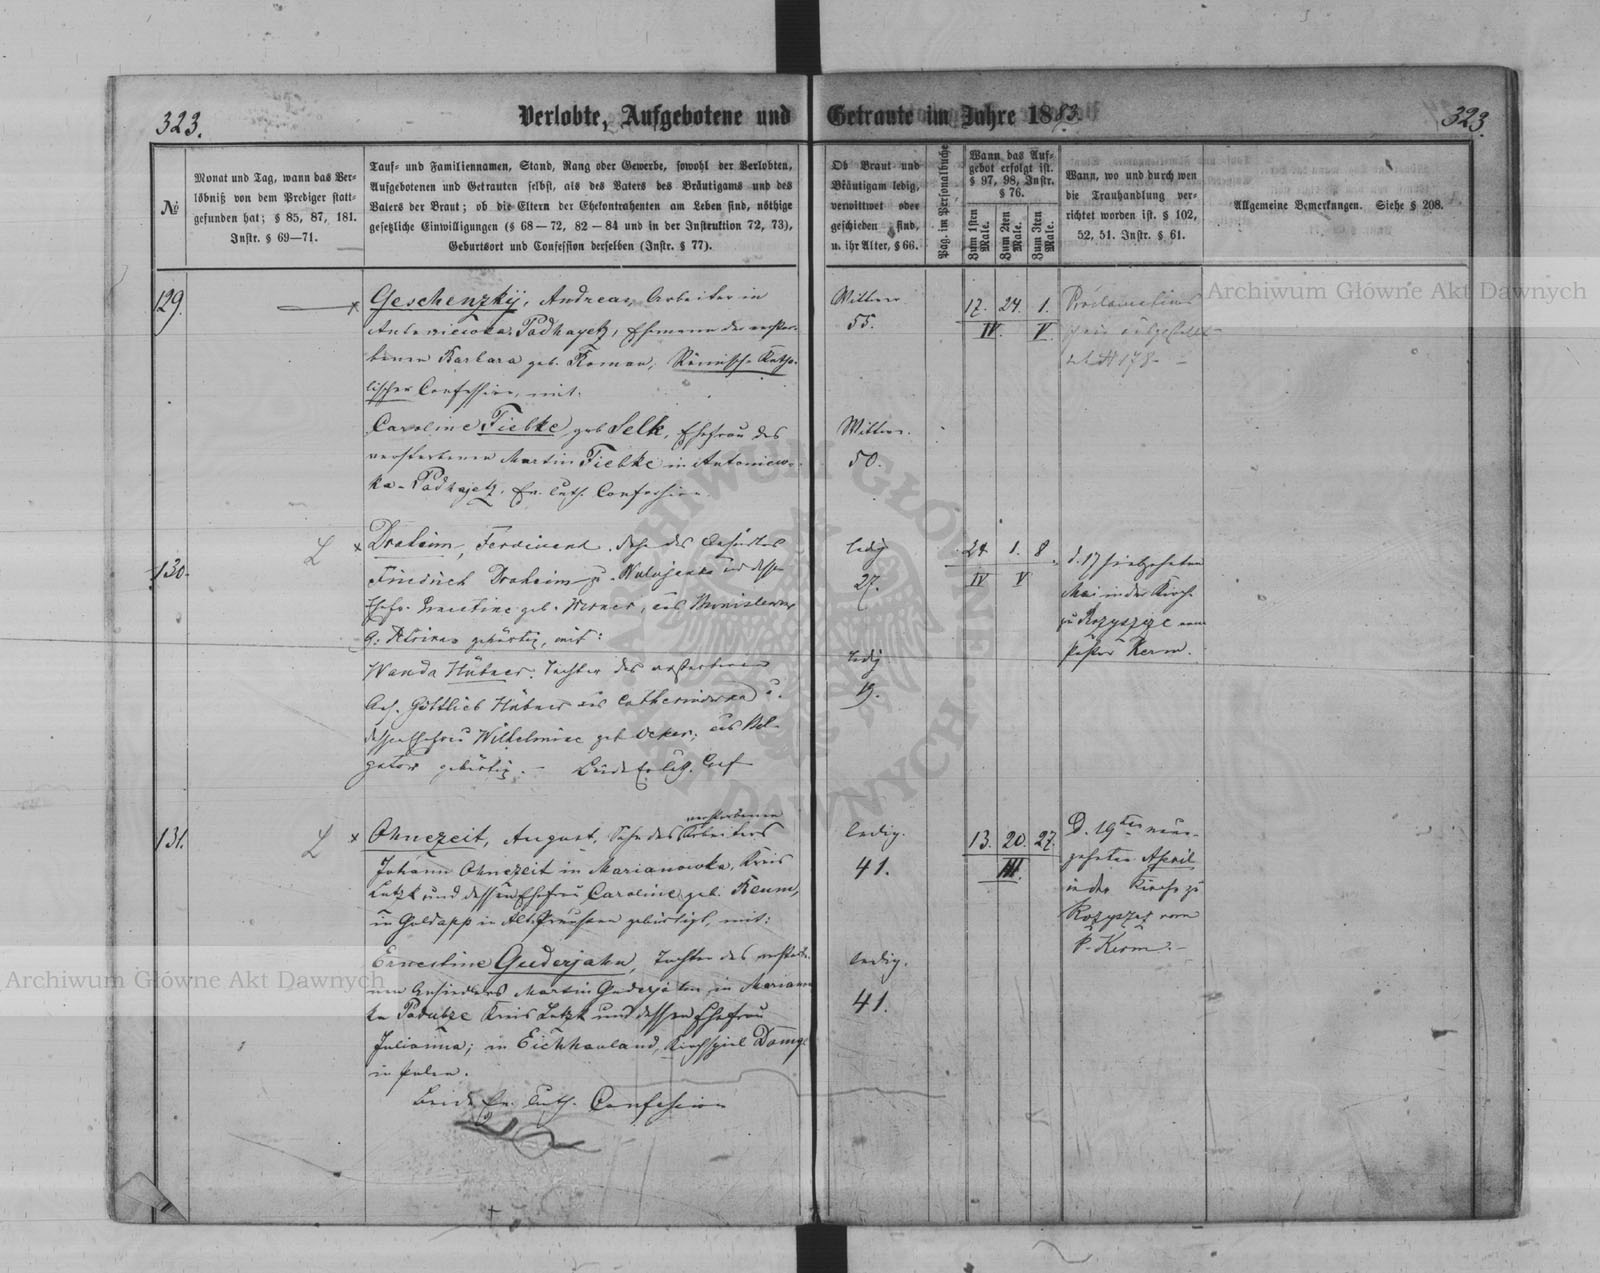 323.
Verlobte, Aufgebotene und Getraute im Jahre 1883.
323.
№
Monat und Tag, wann das Ver-
löbniß von dem Prediger statt-
gefunden hat; § 85, 87, 181.
Instr. § 69—71.
Tauf- und Familiennamen, Stand, Rang oder Gewerbe, sowohl der Verlobten,
Aufgebotenen und Getrauten selbst, als des Vaters des Bräutigams und des
Vaters der Braut; ob die Eltern der Ehekontrahenten am Leben sind, nöthige
gesetzliche Einwilligungen (§ 68—72, 82—84 und in der Instruktion 72, 73),
Geburtsort und Confession derselben (Instr. § 77).
Ob Braut und
Bräutigam ledig,
verwittwet oder
geschieden sind,
u. ihr Alter, § 66.
Pag. im Personalbuche
Wann das Auf-
gebot erfolgt ist.
§ 97, 98, Instr.
§ 76.
Zum 1sten
Male.
Zum 2ten
Male.
Zum 3ten
Male.
Wann, wo und durch wen
die Trauhandlung ver-
richtet worden ist. § 102,
52, 51. Instr. § 61.
Allgemeine Bemerkungen. Siehe § 208.
129.
Geschenzkij, Andreas, Arbeiter in
Antoniewka-Podhayetz, Ehemann der verstor-
benen Barbara geb. Roman, Römisch-Katho-
lischer Confession, mit:
Caroline Fielke geb Selk, Ehefrau des
verstorbenen Martin Fielke in Antoniew-
ka-Podhajetz, Ev. Luth. Confession.
Wittwer
55.
Wittwe.
50.
17. 24. 1.
IV. V.
№ 178
130.
Draheim, Ferdinand, Sohn des
Friedrich Draheim zu
Ehefr. Ernestine geb. Werner, aus
gebürtig, mit:
Wanda Hübner, Tochter des verstorbenen
Gottlieb Hübner aus Catherinowka u.
dessen Ehefrau Wilhelmine geb Decker, aus Bel-
gebürtig. — Beide Ev. Luth. Conf
ledig
27.
ledig
19.
24. 1. 8
IV V
d. 17 siebzehnten
Mai in der Kirche
zu Rozyszcze vom
Pastor Kerm.
131.
Ohnezeit, August, Sohn des verstorbenen Arbeiters
Johann Ohnezeit in Marianowka, Kreis
Lutzk und dessen Ehefrau Caroline, geb. Keum,
in Goldapp in Alt-Preussen gebürtigt, mit:
Ernestine Guderjahn, Tochter des verstorbe-
nen Ansiedlers Martin Guderjahn in Marianw
ka Kreis Lutzk und dessen Ehefrau
Julianna; in Eichhauland, Kirchspiel
in Polen.
Beide Ev. Luth. Confession
ledig.
41.
ledig.
41.
13. 20. 27.
III.
D. 19ten neun-
zehnten April
in der Kirche zu
Rozyszcz vom
P. Kerm.
Archiwum Główne Akt Dawnych
Archiwum Główne Akt Dawnych
ARCHIWUM GŁÓWNE AKT DAWNYCH